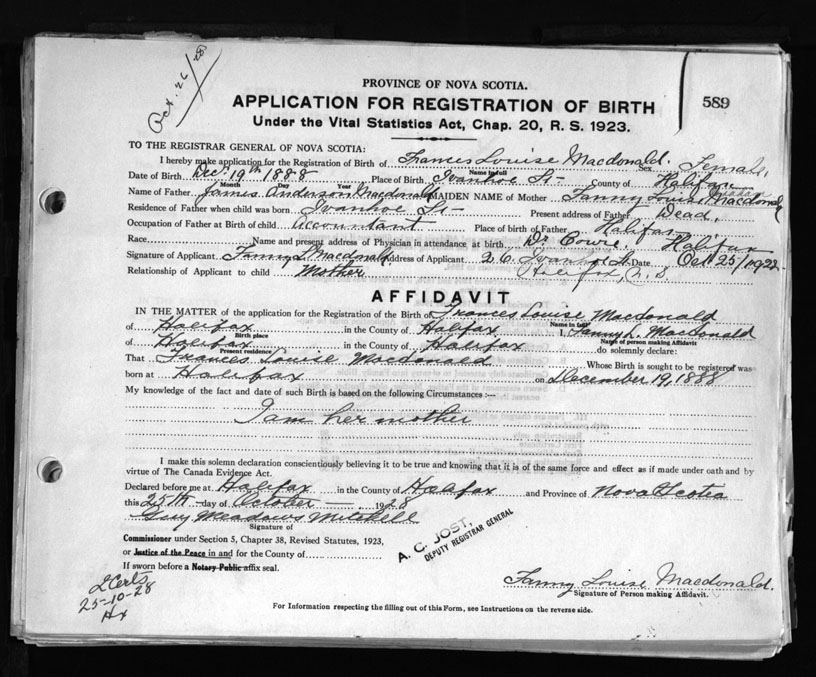 Oct. 26/28
589
PROVINCE OF NOVA SCOTIA.
APPLICATION FOR REGISTRATION OF BIRTH
Under the Vital Statistics Act, Chap. 20, R. S. 1923.
TO THE REGISTRAR GENERAL OF NOVA SCOTIA:
I hereby make application for the Registration of Birth of Frances Louise Macdonald. Sex Female,
Name in full
Date of Birth Dec. 19th 1888 Place of Birth Ivanhoe St- County of Halifax
Month Day Year
Name of Father James Anderson Macdonald MAIDEN NAME of Mother Fanny Louise Macdonald
Residence of Father when child was born Ivanhoe St- Present address of Father Dead,
Occupation of Father at Birth of child Accountant Place of birth of Father Halifax
Race Name and present address of Physician in attendance at birth Dr Cowie. Halifax
Signature of Applicant Fanny L Macdonald Address of Applicant Ivanhoe St Date Oct 25/1928
Relationship of Applicant to child Mother Halifax, N.S
AFFIDAVIT
IN THE MATTER of the application for the Registration of the Birth of Frances Louise Macdonald
Name in full
of Halifax in the County of Halifax I, Fanny L. MacDonald
Birth place Name of person making Affidavit
of Halifax in the County of Halifax do solemnly declare:
Present residence
That Frances Louise Macdonald Whose Birth is sought to be registered was
born at Halifax on December 19, 1888
My knowledge of the fact and date of such Birth is based on the following Circumstances :—
I am her mother
I make this solemn declaration conscientiously believing it to be true and knowing that it is of the same force and effect as if made under oath and by
virtue of The Canada Evidence Act.
Declared before me at Halifax in the County of Halifax and Province of Nova Scotia
this 25th day of October 1928
Guy Meadows Mitchell
Signature of
Commissioner under Section 5, Chapter 38, Revised Statutes, 1923,
or Justice of the Peace in and for the County of
If sworn before a Notary Public affix seal.
A. C. JOST,
DEPUTY REGISTRAR GENERAL
2 Certs
25-10-28
Hx
Fanny Louise Macdonald.
Signature of Person making Affidavit.
For Information respecting the filling out of this Form, see Instructions on the reverse side.